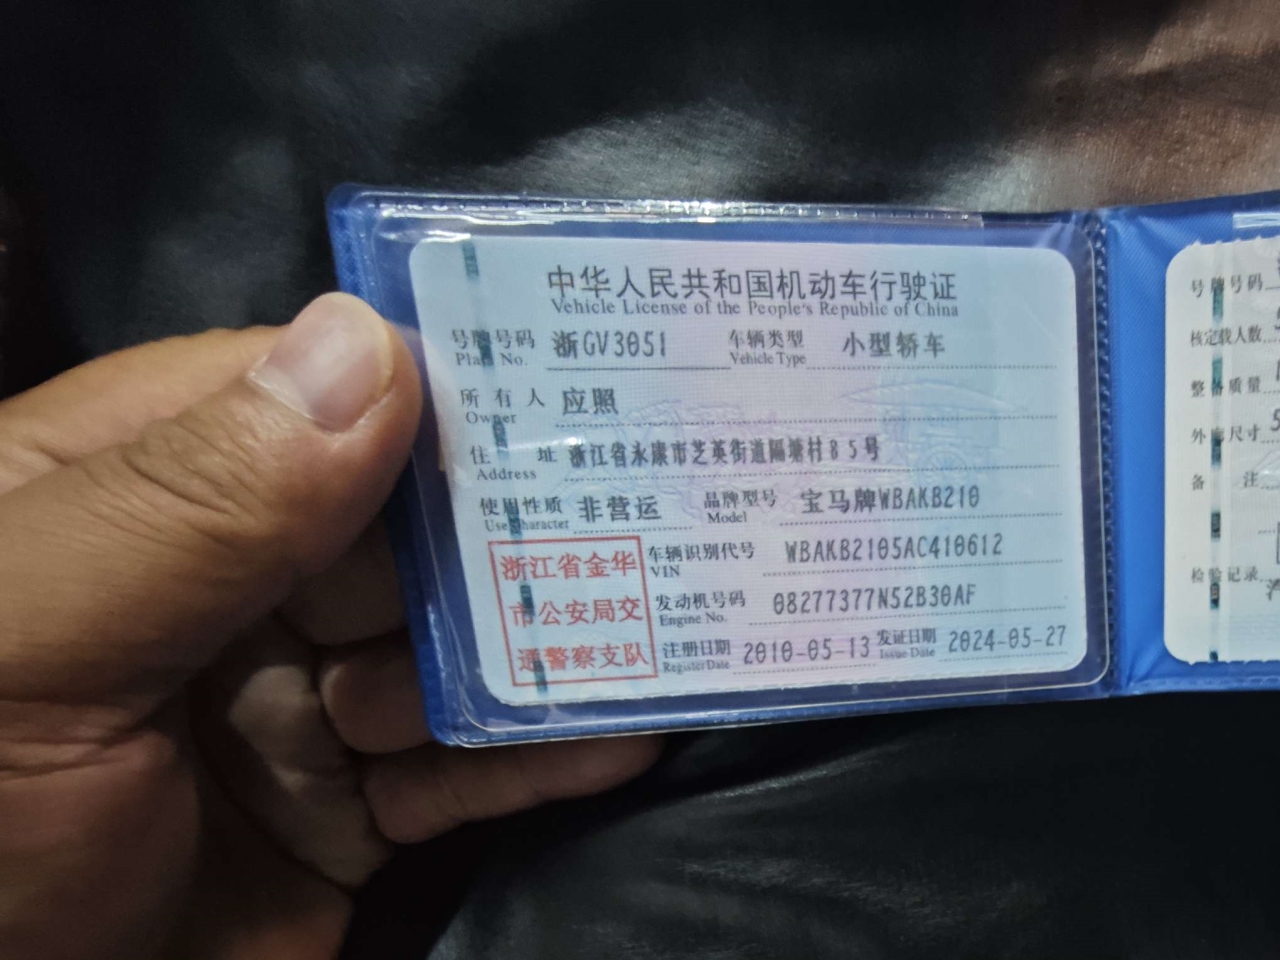 中华人民共和国机动车行驶证
Vehicle License of the People's Republic of China
号牌号码 浙GV3051 车辆类型 小型轿车
Plate No. Vehicle Type
所有人 应照
Owner
住址 浙江省永康市芝英街道隔塘村85号
Address
使用性质 非营运 品牌型号 宝马牌WBAKB210
Use Character Model
浙江省金华
市公安局交
通警察支队
车辆识别代号 WBAKB2105AC410612
VIN
发动机号码 08277377N52B30AF
Engine No.
注册日期 2010-05-13 发证日期 2024-05-27
Register Date Issue Date
号牌号码
核定载人数
整备质量
外廓尺寸 5
备注
检验记录